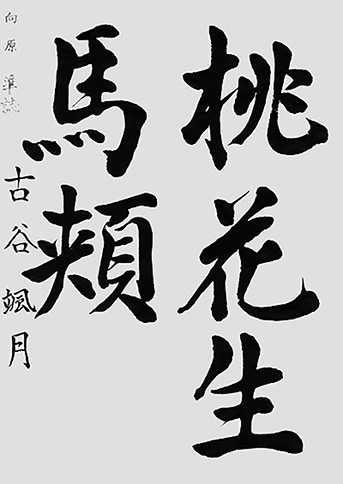 桃花生
馬頬
向原 準誌
古谷颯月